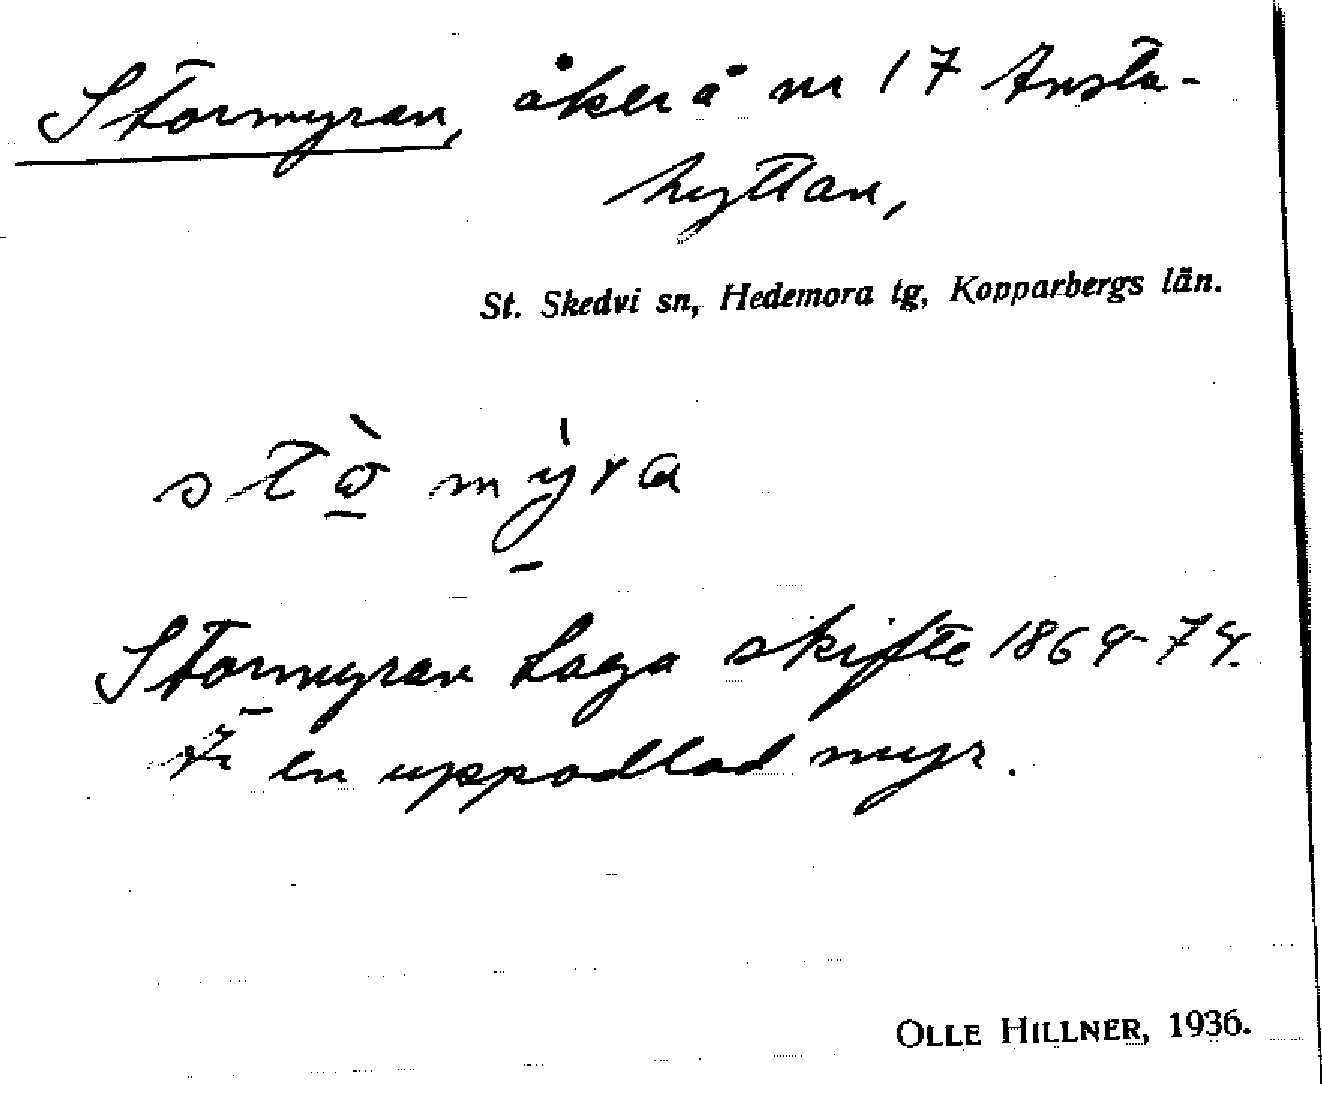 Stormyran, åker å nr 17 Ansta-
hyttan,
St. Skedvi sn, Hedemora tg, Kopparbergs län.
Stormyran Laga skifte 1864-74.
Är en uppodlad myr.
OLLE HILLNER, 1936.